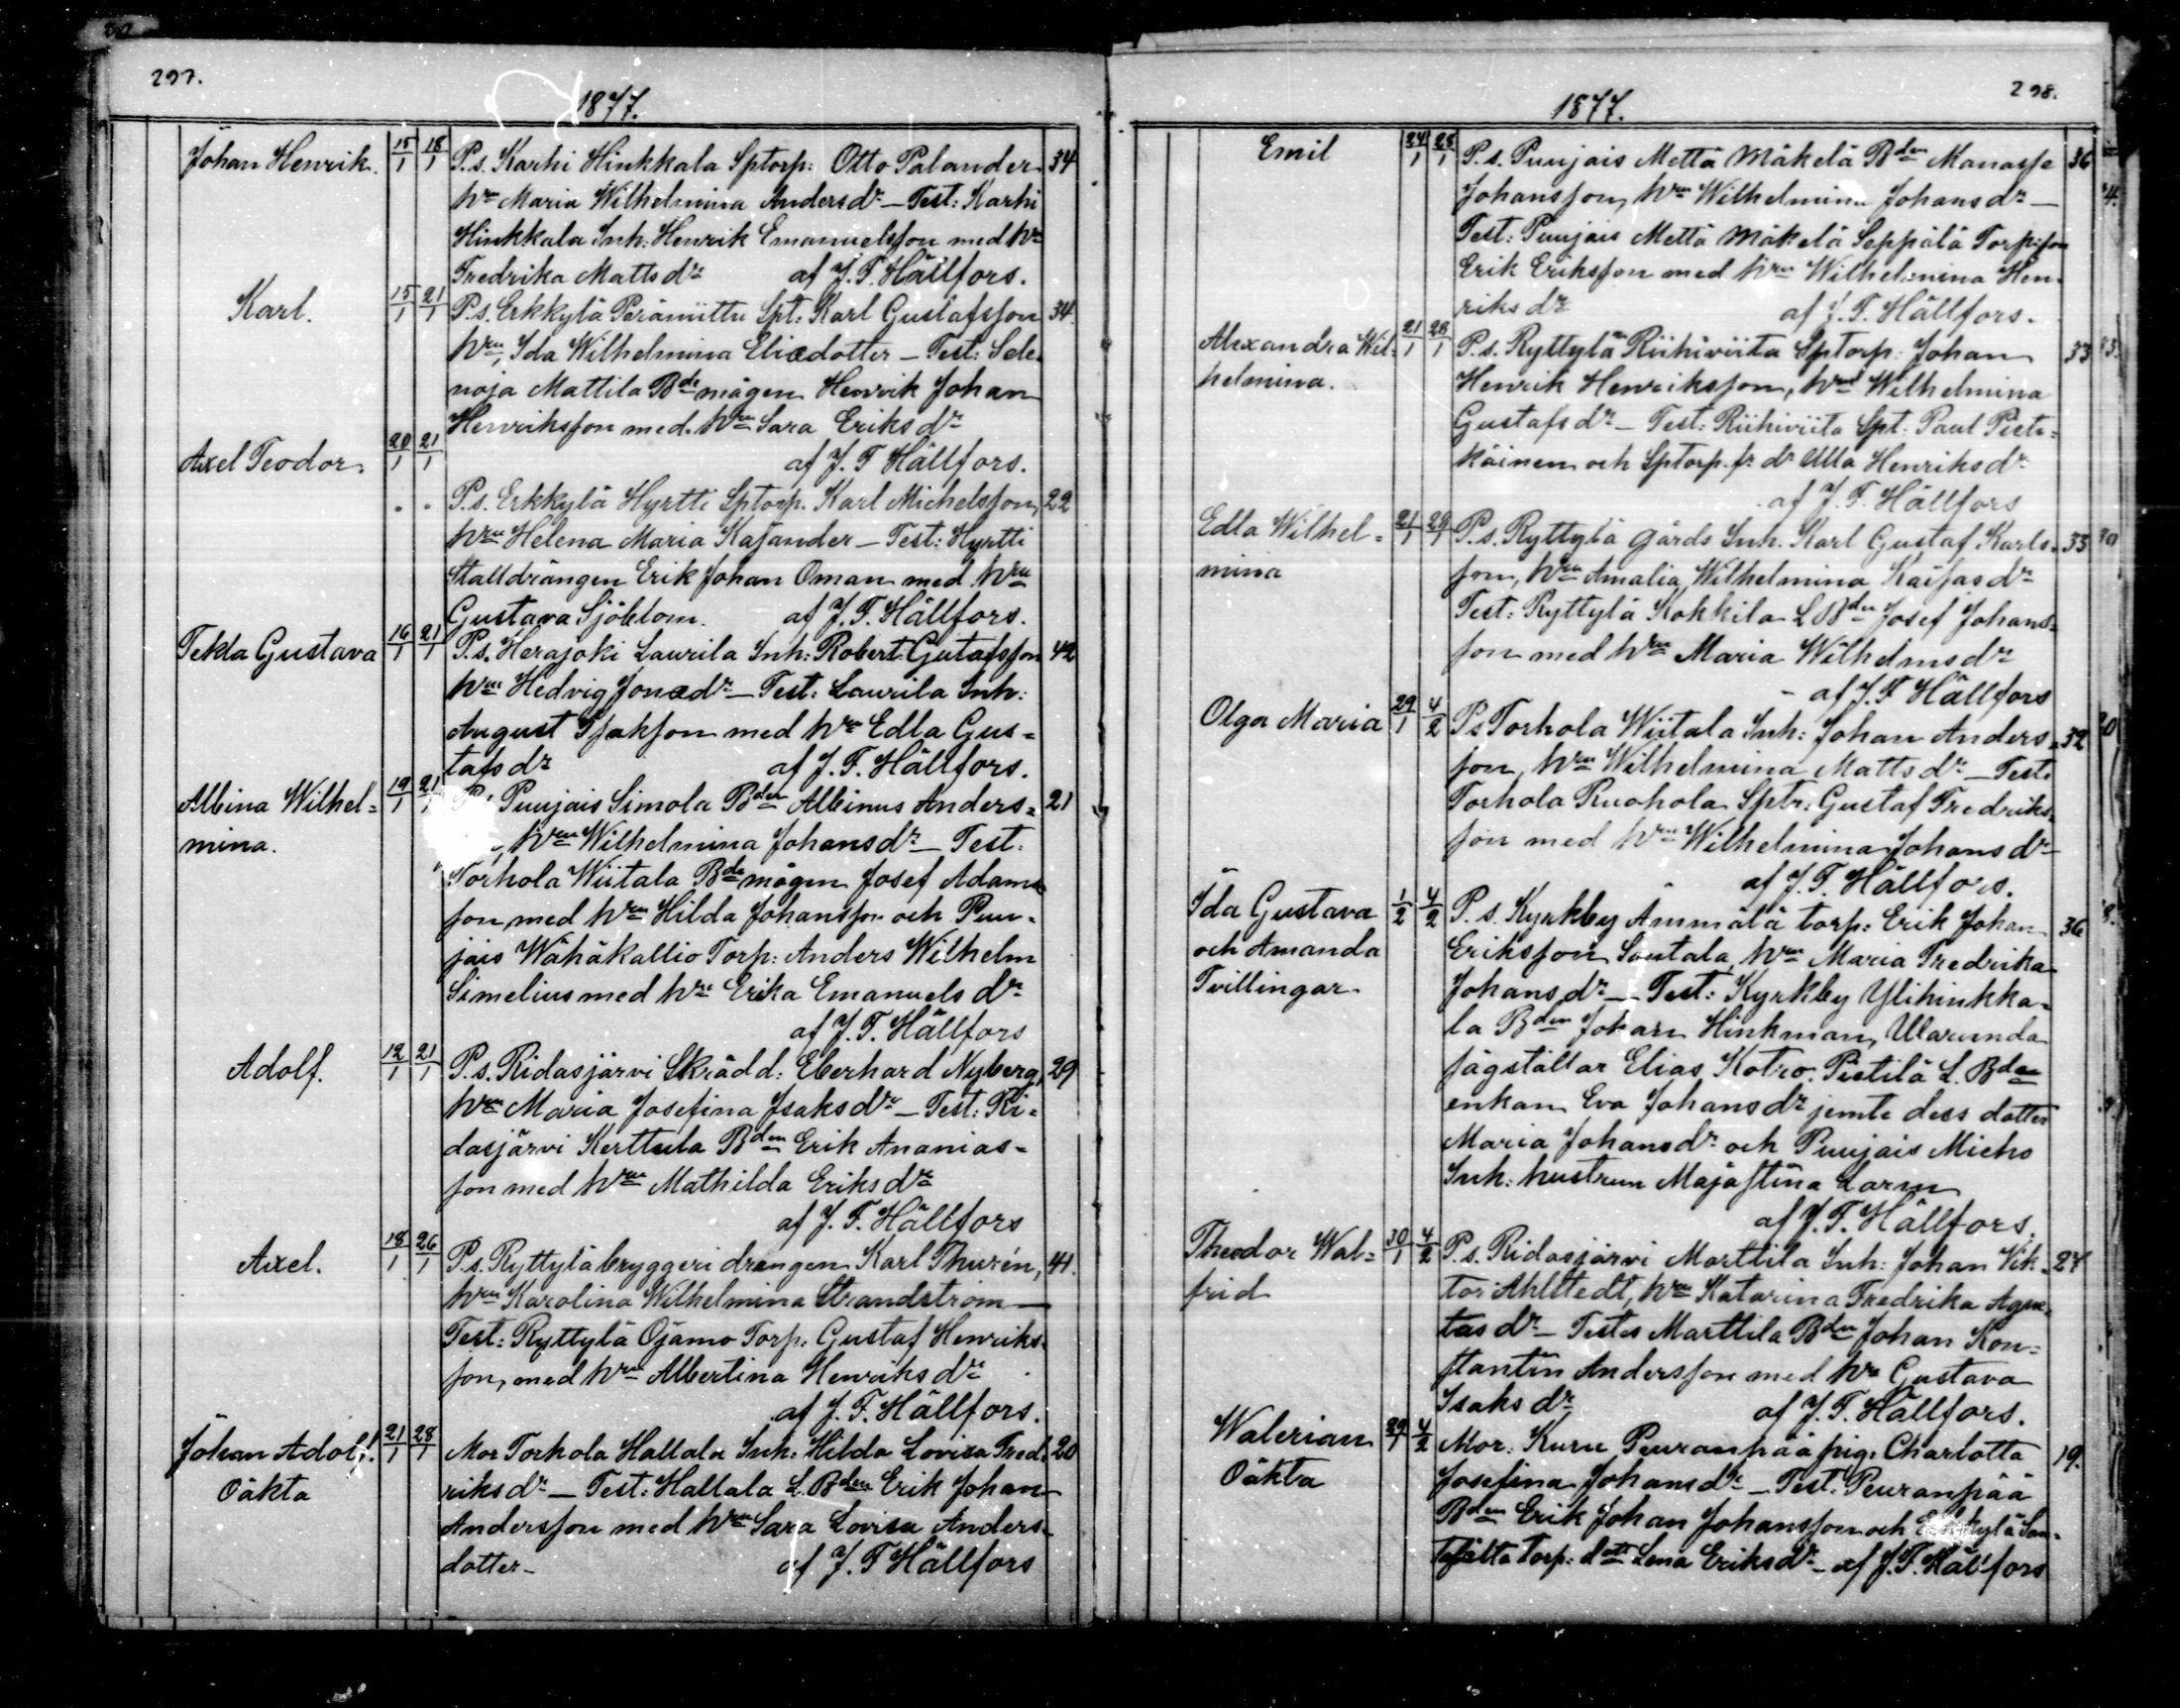 297.
1877.
Johan Henrik. 15/1 18/1 P.s. Karhi Hinkkala Sptorp: Otto Palander 34
hru Maria Wilhelmina Andersdr – Test: Karhi
Hinkkala Inh: Henrik Emanuelsson med hru
Fredrika Mattsdr af J. F. Hällfors.
Karl. 15/1 21/1 P.s. Erkkylä Peräniittu Spt: Karl Gustafsson 34.
hru, Ida Wilhelmina Eliædotter – Test: Sele-
noja Mattila Bdemågen Henrik Johan
Henriksson med hru Sara Eriksdr
Axel Teodor. 20/1 21/1 af J. F. Hällfors.
P.s. Erkkylä Hyrtti Sptorp. Karl Michelsson, 22
hru Helena Maria Kajander – Test: Hyrtti
Stalldrängen Erik Johan Öman med hru
Gustava Sjöblom. af J. F. Hällfors.
Tekla Gustava 16/1 21/1 P.s. Herajoki Laurila Inh: Robert Gutafsson 42
hru Hedvig Jonædr – Test: Laurila Inh:
August Isaksson med hru Edla Gus=
tafsdr af J. F. Hällfors.
Albina Wilhel= 19/1 21/1 Puujais Simola Bden Albinus Anders= 21
mina. hru Wilhelmina Johansdr – Test:
Torhola Wiitala Bdemågen Josef Adams
son med hru Hilda Johansson och Puu-
jais Wähäkallio Torp: Anders Wilhelm
Simelius med hru Erika Emanuelsdr
af J. F. Hällfors
Adolf. 12/1 21/1 P.s. Ridasjärvi Skrädd: Eberhard Nyberg, 29
hru Maria Josefina Isaksdr – Test: Ri=
dasjärvi Kerttula Bden Erik Ananias-
son med hru Mathilda Eriksdr
af J. F. Hällfors
Axel. 18/1 26/1 P.s. Ryttylä bryggeri drengen Karl Thurén, 41.
hru Karolina Wilhelmina Strandström –
Test: Ryttylä Ojamo Torp: Gustaf Henriks-
son, med hru Albertina Henriksdr
af J. F. Hällfors.
Johan Adolf. 21/1 28/1 Mor Torhola Hallala Inh: Hilda Lovisa Fred- 20
Oäkta riksdr – Test: Hallala L. Bden Erik Johan
Andersson med hru Sara Lovisa Anders-
dotter – af J. F Hällfors
298.
1877.
Emil 24/1 28/1 P.s. Puujais Mettä Mäkelä Bden Manasse 36
Johansson, hru Wilhelmina Johansdr –
Test: Puujais Mettä Mäkelä Seppälä Torp:son
Erik Eriksson med hru Wilhelmina Hen-
riksdr af J. F. Hällfors.
Alexandra Wil- 21/1 28/1 P.s. Ryttylä Riihiviita Sptorp: Johan 33
helmina. Henrik Henriksson, hru Wilhelmina
Gustafsdr – Test: Riihiviita Spt. Paul Pieti=
käinen och Sptorp. fr dr Ulla Henriksdr
af J. F. Hällfors
Edla Wilhel= 21/1 29/1 P.s. Ryttylä gårds Inh. Karl Gustaf Karls- 33
mina son, hru Amalia Wilhelmina Kaijasdr
Test: Ryttylä Kokkila L Bden Josef Johans=
son med hru Maria Wilhelmsdr
– af J. F Hällfors
Olga Maria 29/1 4/2 Ps Torhola Wiitala Inh: Johan Anders- 32
son, hru Wilhelmina Mattsdr – Test:
Torhola Ruohola Sptr: Gustaf Fredriks-
son med hru Wilhelmina Johansdr
af J. F. Hällfors.
Ida Gustava 1/2 4/2 P.s. Kyrkby Ammälä torp: Erik Johan 36
och Amanda Eriksson Santala, hru Maria Fredrika
Tvillingar. Johansdr – Test: Kyrkby Ylihinkka-
la Bden Johan Hinkman,
Elias Kotro. Pietilä L. Bden
enkan Eva Johansdr jemte dess dotter
Maria Johansdr och Puujais Micho
Inh: hustrun Majastina Larm
af J. F. Hällfors.
Theodor Wal= 30/1 4/2 P.s. Ridasjärvi Marttila Inh: Johan Vik- 24
frid tor Ahlstedt, hru Katarina Fredrika Agne-
tas dr – Testes Marttila Bden Johan Kon=
stantin Andersson med hru Gustava
Isaksdr af J. F. Hällfors.
Walerian 29/1 4/2 Mor: Kuru Peuranpää pig: Charlotta 19.
Oäkta Josefina Johansdr – Test: Peuranpää
Bden Erik Johan Johansson och
Torp: dott Lena Eriksdr – af J. F. Hällfors